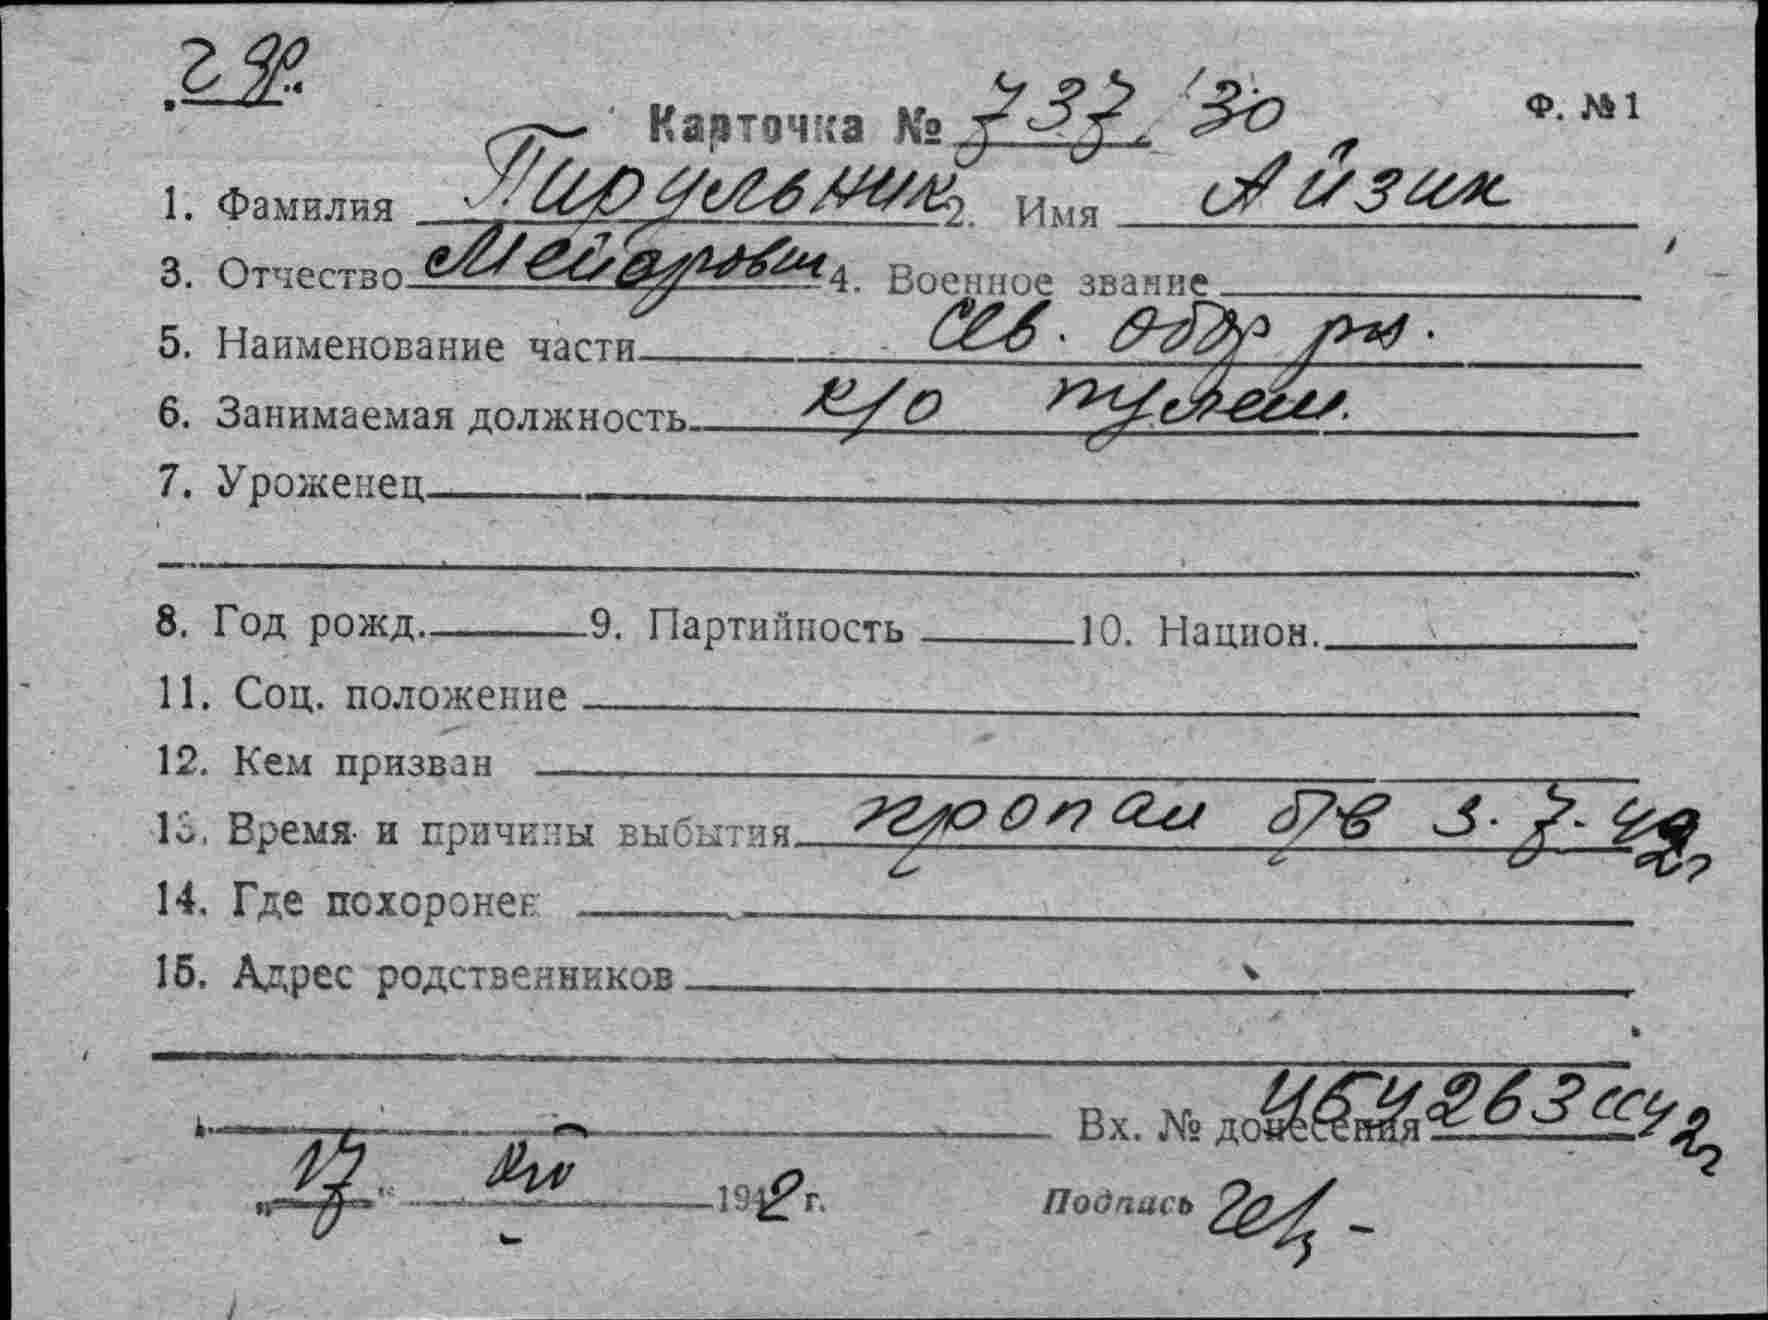 Карточка № 737, 30 Ф. №1
1. Фамилия Пирульник 2. Имя Айзик
3. Отчество Мейерович 4. Военное звание
5. Наименование части Сев. обор рн.
6. Занимаемая должность к/о пулем.
7. Уроженец
8. Год рожд. 9. Партийность 10. Национ.
11. Соц. положение
12. Кем призван
13. Время и причины выбытия пропал б/в 3.7.42
14. Где похоронен
15. Адрес родственников
Вх. № донесения
„17“ 1942 г. Подпись